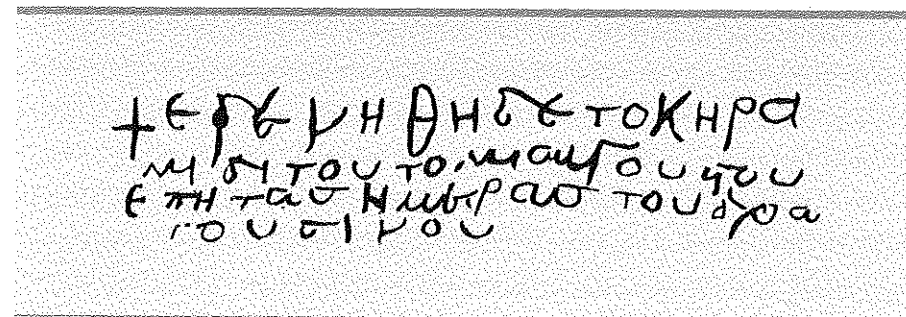 + εγενηθη δε το κηρα
μιδι τουτο. μι αυγουστου
επη τας ημερας του δρα
γουσινου